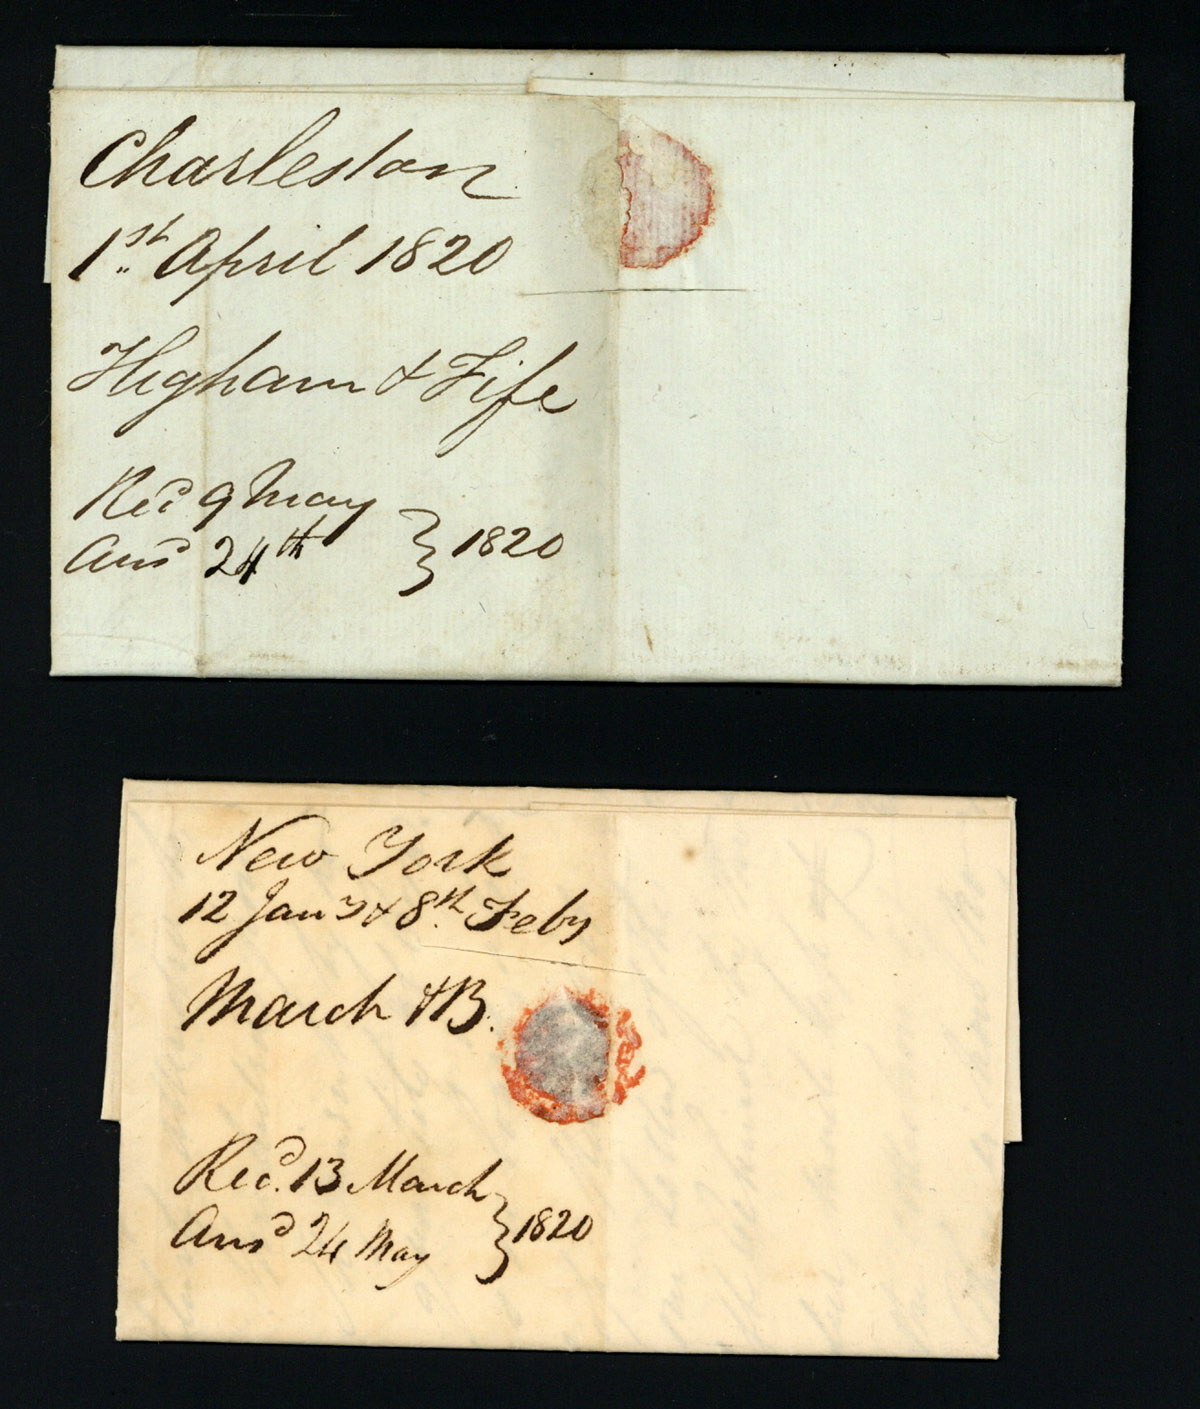 Charleston
1st April 1820
Higham & Fife
Recd 9 May
Ansd 24th } 1820
New York
12 Jany & 8th Feby
March & B.
Recd. 13 March
Ansd 24 May } 1820